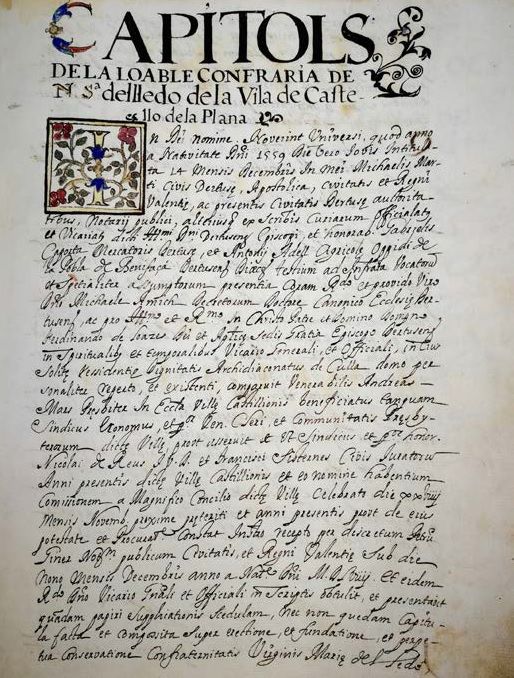 CAPITOLS
DE LA LOABLE CONFRARIA DE
N Sª del lledo de la Vila de Caste-
llo de la Plana
In Dei nomine. Noverint Universi, quod anno
a Nativitate Dñi 1559 Die Vero Jovis Intitula-
ta 14 Mensis Decembris In mei Michaelis Mar-
ti Civis Dertuse, Apostolica, Civitatis et Regni
Valentie, ac presentis Civitatis Dertuse authorita-
tibus, Notarij publici, alteriusq ex scribis Curiarum Officialatg
et Vicariatg dicti Dñi Dertusensg Episcopi, et honorabg Gabrielis
Mercatoris Dertuse, et Antonij Adell Agricole Oppidi de
la Pobla de Benifaça Dertuseng Diocg testium ad Infrata Vocatorum
et Specialiter assumptorum presentia Coram Rdo et provido Viro
Dño Michaele Amich Decretorum Doctore Canonico Ecclesig Der-
tuseng, ac pro Illmo et Rmo in Christo Patre et Domino Domino
Ferdinando de Loazes Dei et Aplicg Sedis Gratia Episcopo Dertuseng
in Spiritualibg et temporalibus Vicario Generali, et Officiali, in Eius
Solitg Residentig Dignitatis Archidiaconatus de Culla domo per
sonaliter reperto, et existenti, comparuit Venerabilis Andreas
Mars Presbiter In Eccla Villg Castillionis beneficiatus tanquam
Sindicus Yconomus, et Ven. Cleri, et Communitatis Presby-
terorum dictg Villg prout asseruit et Vt Sindicus et honor.
Nicolai de Reus et Francisci Sisternes Civis Juratorum
Anni presentis dictg Villg Castillionis et eo nomine habentium
Comisionem a Magnifico Concilio dictg Villg Celebrato die xxviij
Mensis Novemb. proxime preteriti et anni presentis prout de eius
potestate et Procuraõe Constat Instto recepto per discretum Petrũ
Giner Notm publicum Civitatis, et Regni Valentie Sub die
Nono Mensis Decembris anno a Natg Dñi M.D.Lviiij et eidem
Rdo Dño Vicario Gnali et Officiali in Scriptis obtulit, et presentavit
quandam papiri Supplicationis Scedulam, nec non quedam Capitu-
la facta et composita Super erectione, et fundatione, et perpe-
tua Conservatione Confraternitatis Virginis Marig del Ledo